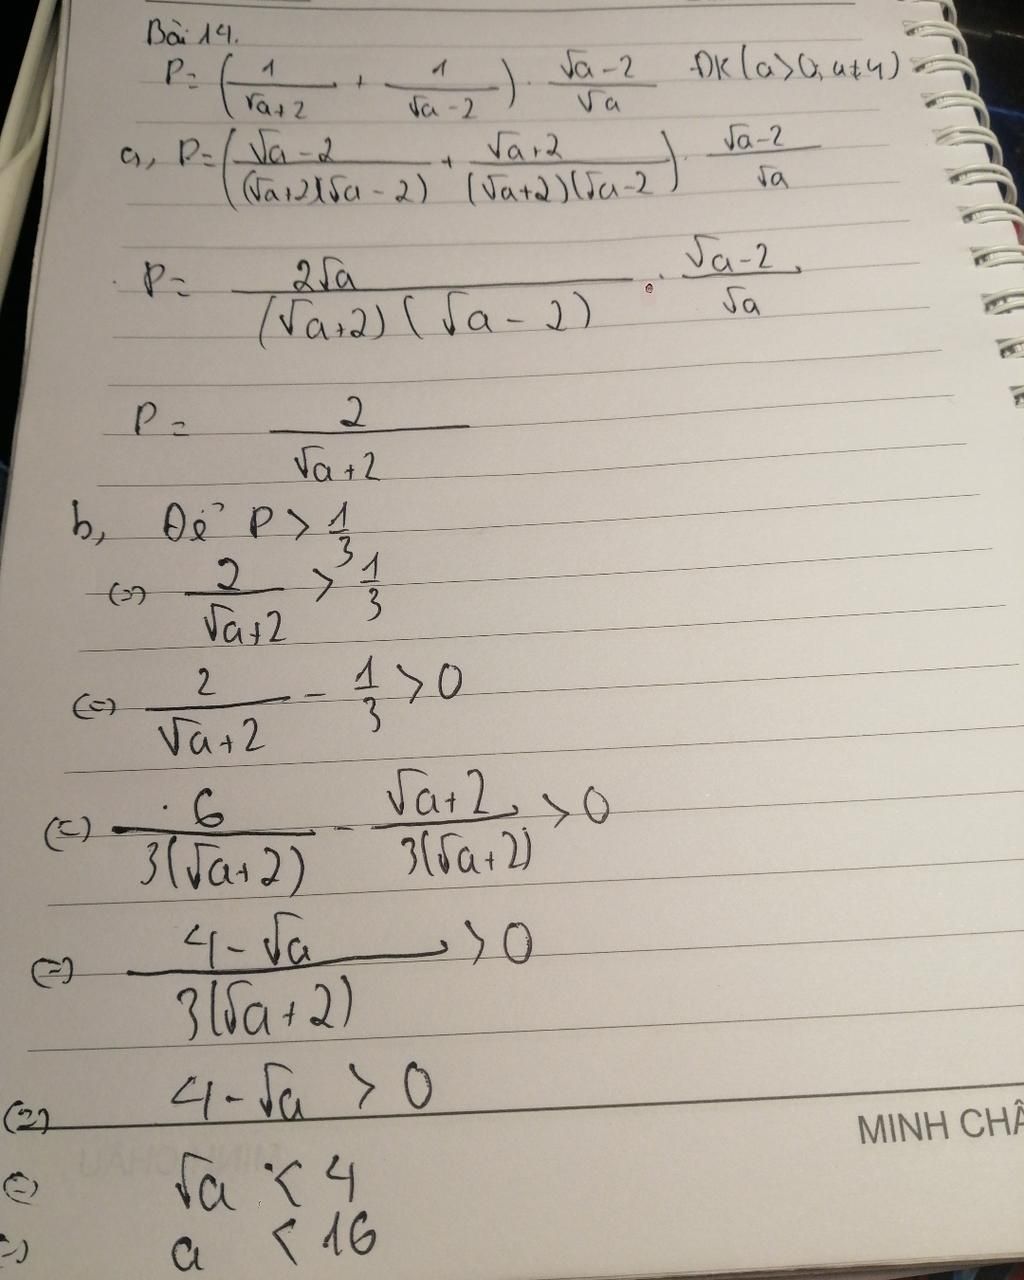 Bài 14.
P = (1/(√a+2) + 1/(√a-2)) · (√a-2)/√a ĐK (a>0, a≠4)
a, P = ((√a-2)/((√a+2)(√a-2)) + (√a+2)/((√a+2)(√a-2)) · (√a-2)/√a
P = 2√a/((√a+2)(√a-2)) · (√a-2)/√a
P = 2/(√a+2)
b, Để P > 1/3
(=) 2/(√a+2) > 1/3
(=) 2/(√a+2) - 1/3 > 0
(=) 6/(3(√a+2)) - (√a+2)/(3(√a+2)) > 0
(=) (4-√a)/(3(√a+2)) > 0
(=) 4-√a > 0
(=) √a < 4
(=) a < 16
MINH CHÂ